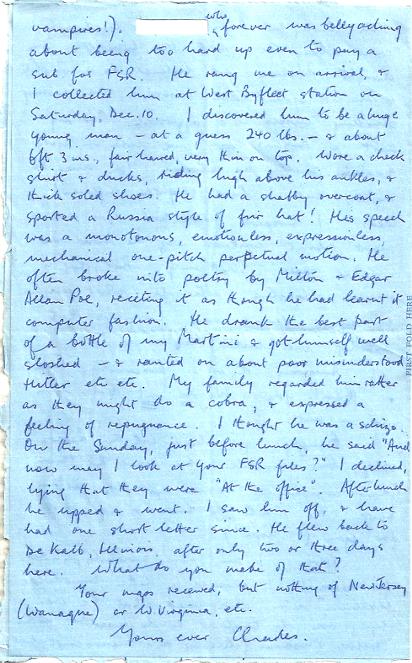 vampires!). who forever was bellyaching
about being too hard up even to pay a
sub for FSR. He rang me on arrival, &
I collected him at West Byfleet station on
Saturday, Dec. 10. I discovered him to be a huge
young man – at a guess 240 lbs. – & about
6ft 3 ins, fair haired, very thin on top. Wore a check
shirt & ducks, riding high above his ankles, &
thick soled shoes. He had a shabby overcoat, &
sported a Russia style of fur hat! His speech
was a monotonous, emotionless, expressionless,
mechanical one-pitch perpetual motion. He
often broke into poetry by Milton & Edgar
Allan Poe, reciting it as though he had learnt it
computer fashion. He drank the best part
of a bottle of my Martini & got himself well
sloshed – & ranted on about poor misunderstood
Hitler etc etc. My family regarded him rather
as they might do a cobra, & expressed a
feeling of repugnance. I thought he was a schizo.
On the Sunday, just before lunch, he said "And
now may I look at your FSR files?" I declined,
lying that they were "At the office". After lunch
he upped & went. I saw him off, & have
had one short letter since. He flew back to
De Kalb, Illinois, after only two or three days
here. What do you make of that?
Your maps received, but nothing of New Jersey
(Wanaque) or W. Virginia, etc.
Yours ever Charles.
FIRST FOLD HERE